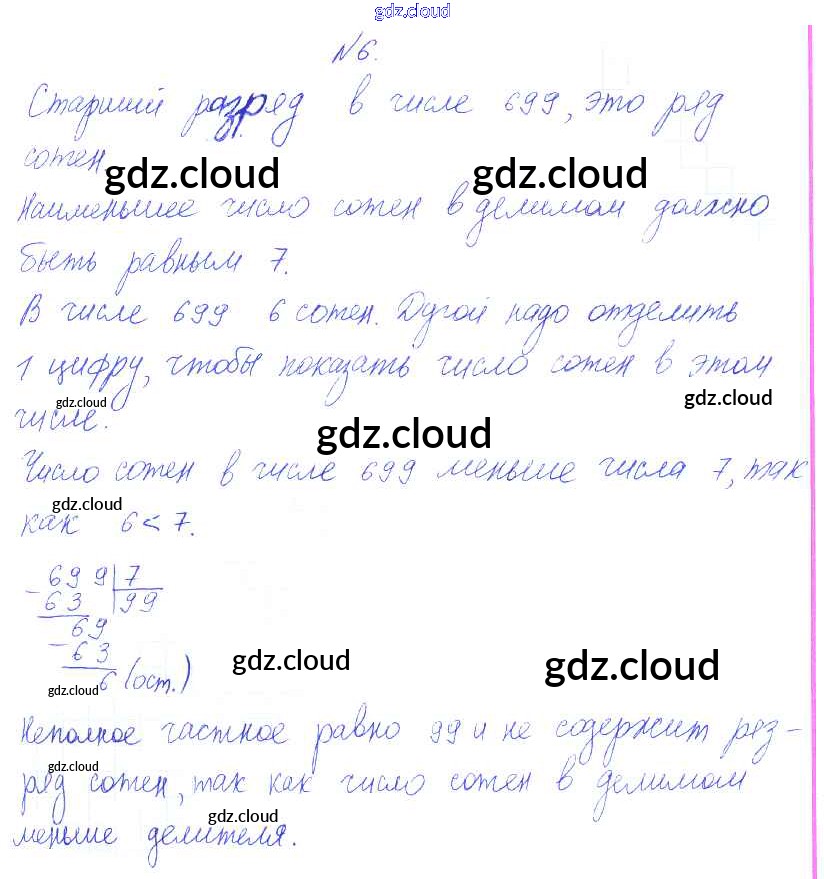 gdz.cloud
№6.
Старший разряд в числе 699, это ряд
сотен.
gdz.cloud gdz.cloud
Наименьшее число сотен в делимом должно
быть равным 7.
В числе 699 6 сотен. Дугой надо отделить
1 цифру, чтобы показать число сотен в этом
gdz.cloud gdz.cloud
числе.
gdz.cloud
Число сотен в числе 699 меньше числа 7, так
gdz.cloud
как 6 < 7.
699 | 7
- 63 | 99
69
- 63
gdz.cloud gdz.cloud
6 (ост.)
gdz.cloud
Неполное частное равно 99 и не содержит раз-
gdz.cloud
ряд сотен, так как число сотен в делимом
gdz.cloud
меньше делителя.